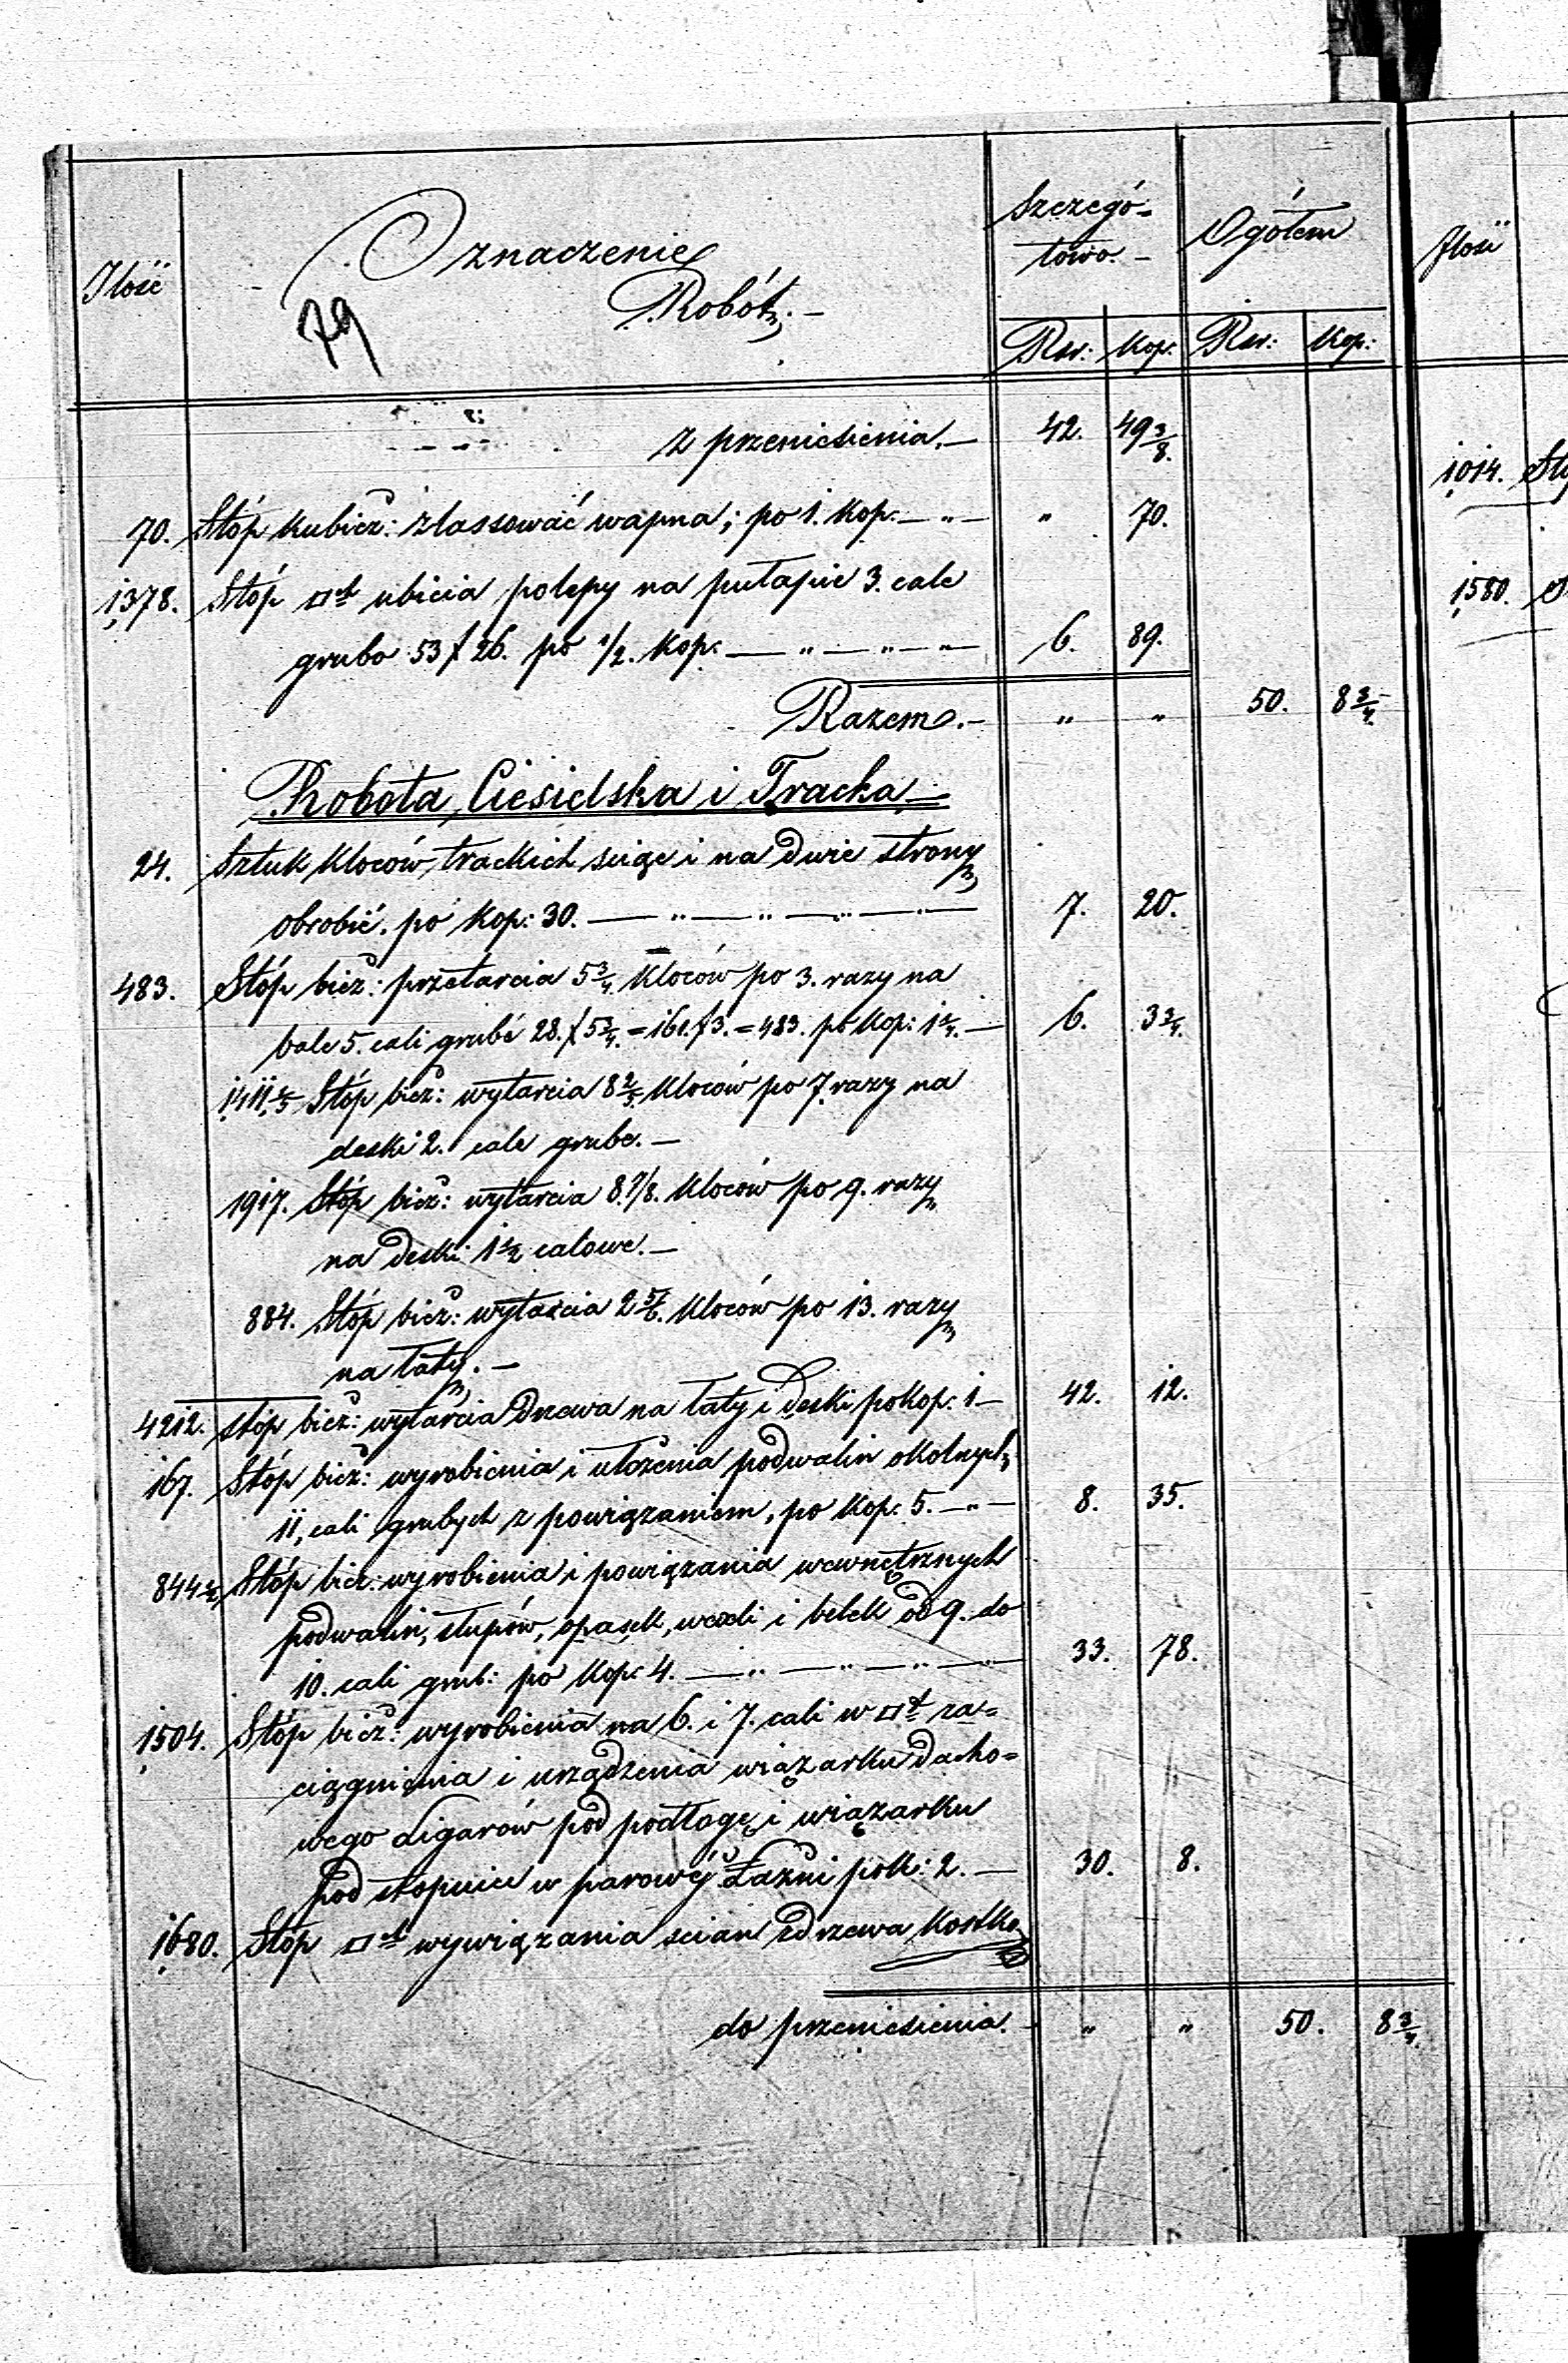 Ilość
Oznaczenie
Robót. —
79
Szczegó=
łowo. —
Ogółem
Rsr: Kop: Rsr: Kop:
z przeniesienia. — 42. 49 3/8.
70. Stóp kubicz: zlassować wapna; po 1. kop: — " — " 70.
1378. Stóp □at ubicia polepy na pułapie 3. cale
grubo 53 f 26. po 1/2. kop: — " — " — " — 6. 89.
Razem. — " " 50. 8 3/4.
Robota Ciesielska i Tracka —
24. Sztuk kloców trackich sciąć i na dwie strony
obrobić. po kop: 30. — " — " — " — " — 7. 20.
483. Stóp bież: przetarcia 5 3/4. kloców po 3. razy na
bale 5. cali grubé 28. f 5 3/4. = 161. f 3. = 483. po kop: 1 1/4. — 6. 3 3/4.
1411 1/5 Stóp bież: wytarcia 8 2/5. kloców po 7. razy na
deski 2. cale grube. —
1917. Stóp bież: wytarcia 8. 7/8. kloców po 9. razy
na deski 1 1/2 calowe. —
884. Stóp bież: wytarcia 2 5/6. kloców po 13. razy
na łaty. —
4212. stóp bież: wytarcia drzewa na łaty i deski po kop: 1 — 42. 12.
167. Stóp bież: wyrobienia i ułożenia podwalin okolnych,
11, cali grubych z powiązaniem, po kop: 5. — " — 8. 35.
844 1/2. Stóp bież: wyrobienia i powiązania wewnętrznych
podwalin, słupów, opasek, wexli i belek od 9. do
10. cali grub: po kop: 4. — " — " — " — " — 33. 78.
1504. Stóp bież: wyrobienia na 6. i 7. cali w □at za=
ciągnienia i urządzenia wiązarku dacho=
wego Ligarów pod podłogę i wiązarku
pod stopnice w parowéj Łaźni po k: 2. — 30. 8.
1680. Stóp □at wywiązania scian z drzewa kostko
do przeniesienia. — " " 50. 8 3/4.
Ilość
1014.
1580.